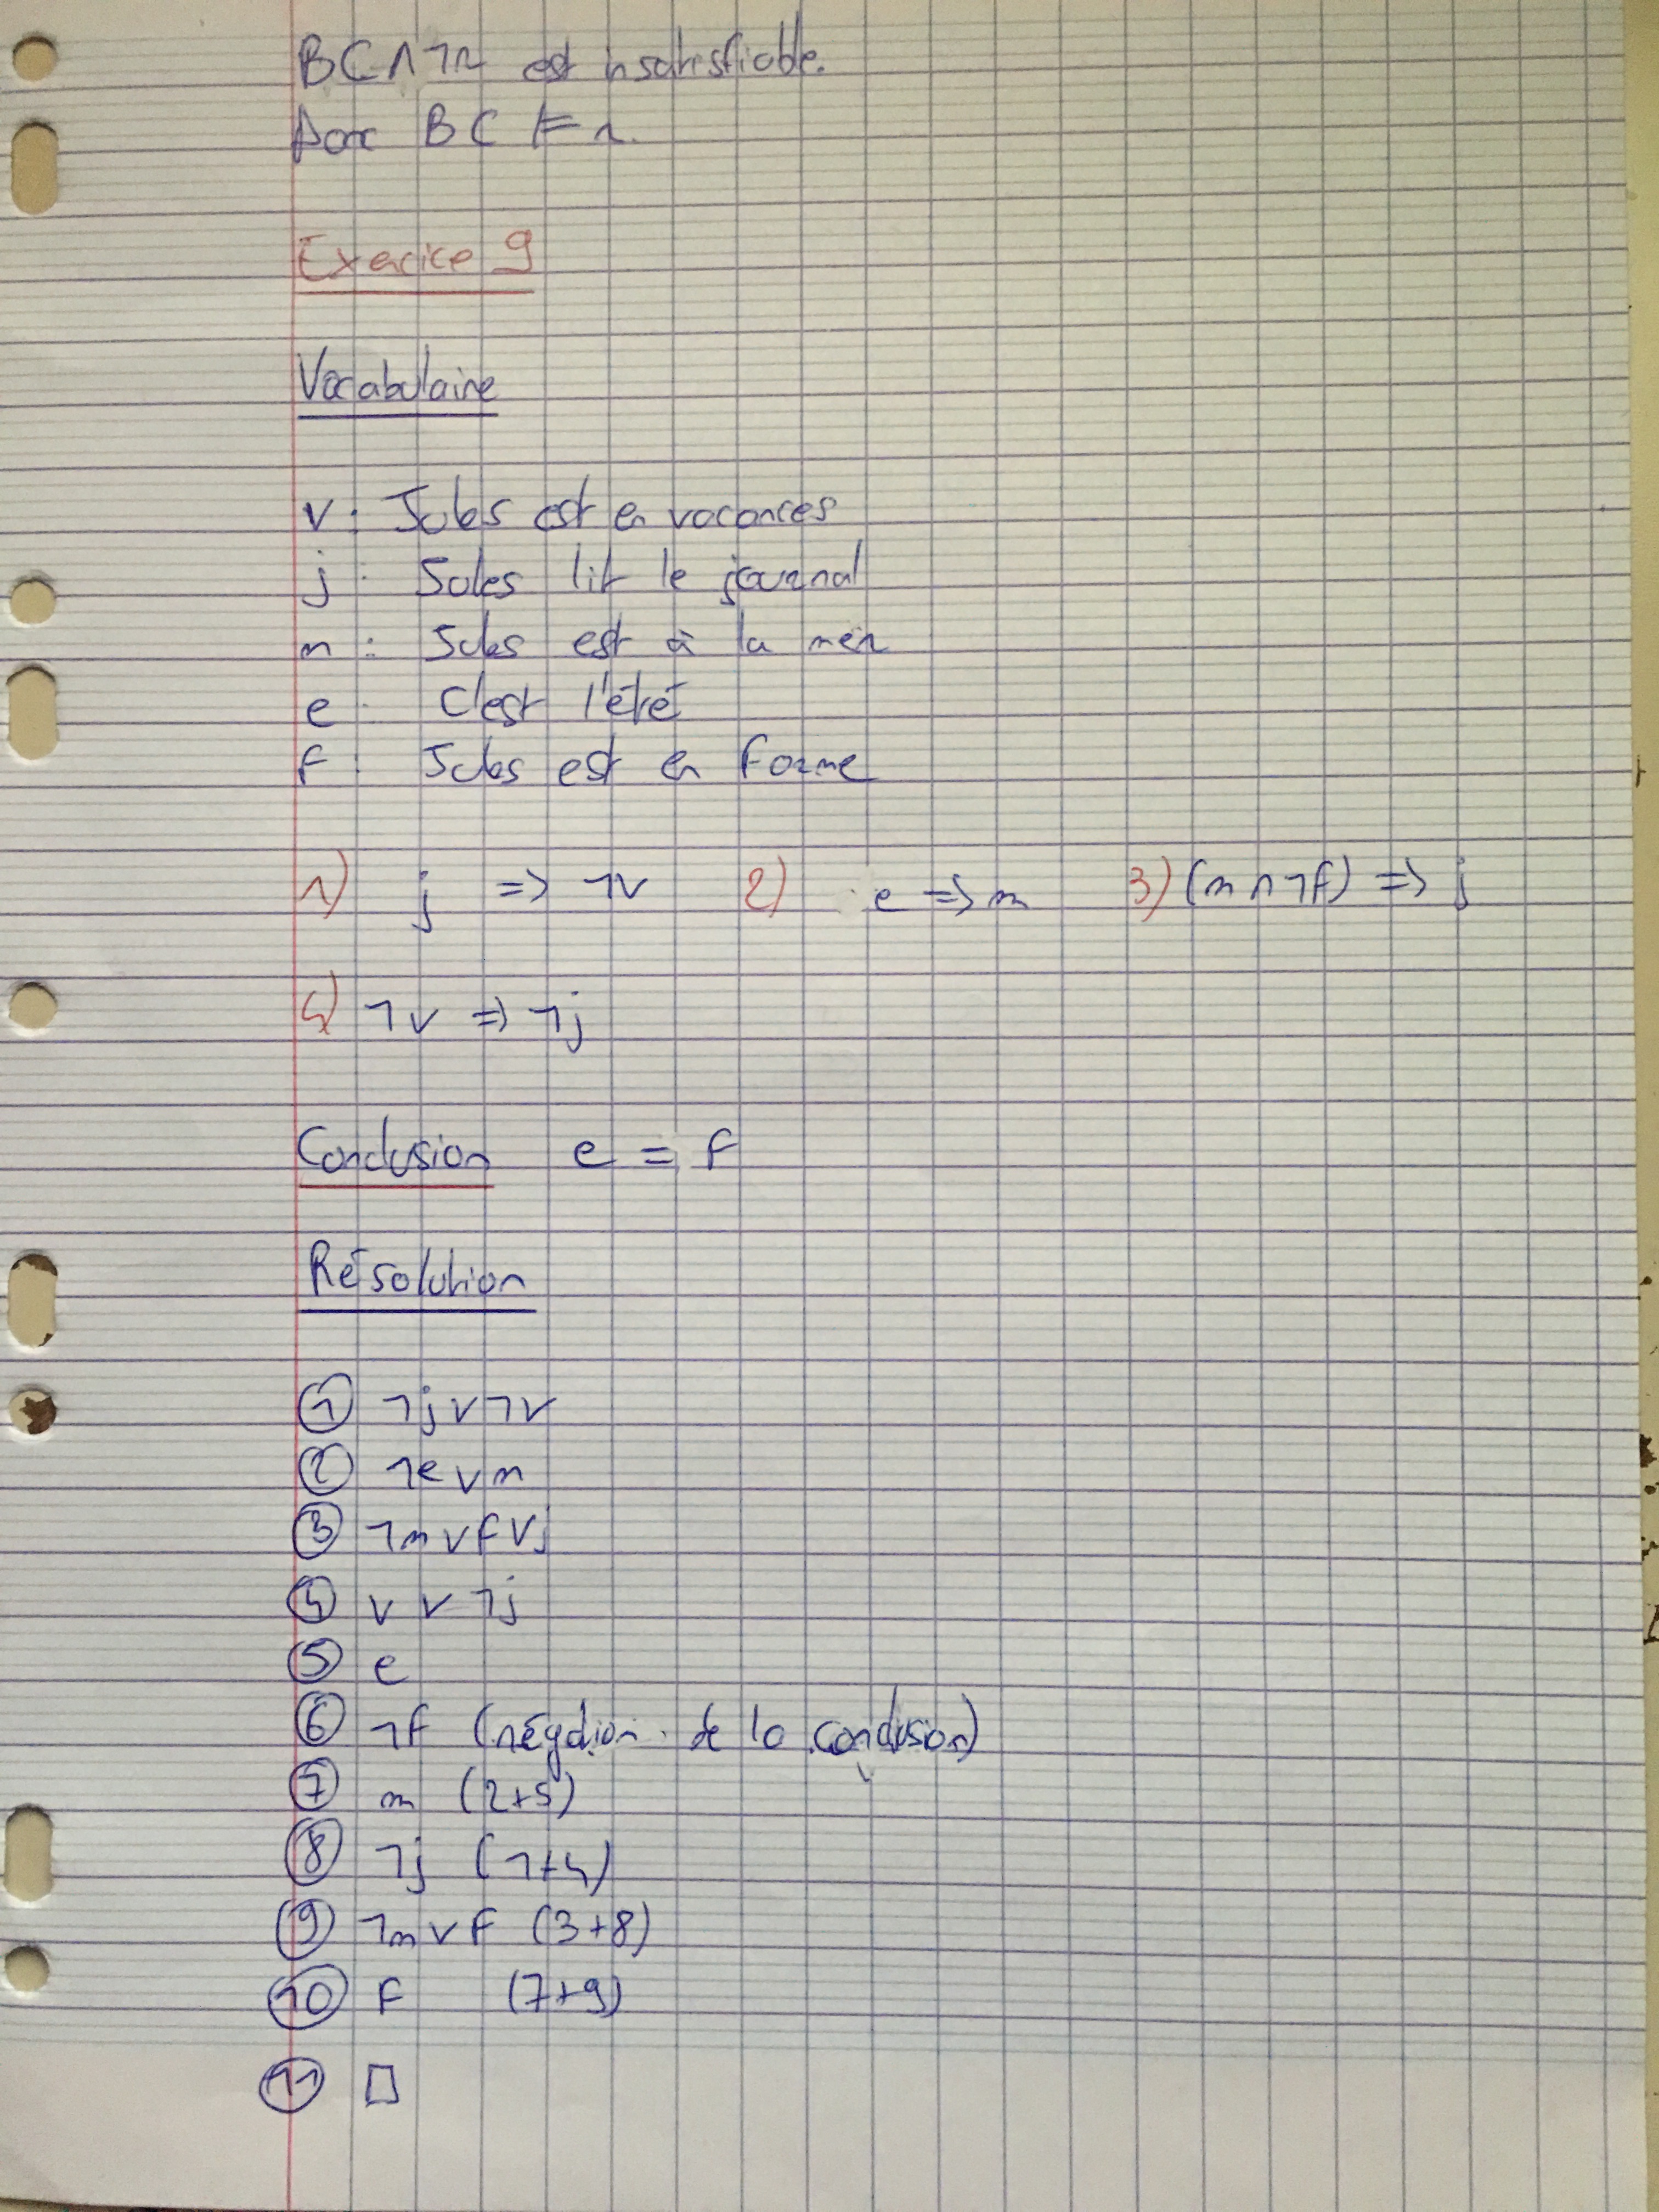 BC ∧ ¬r est insatisfiable.
Donc BC ⊨ r.
Exercice 9
Vocabulaire
v : Jules est en vacances
j : Jules lit le journal
m : Jules est à la mer
e : C'est l'été
f : Jules est en forme
1) j => ¬v 2) e => m 3) (m ∧ ¬f) => j
4) ¬v => ¬j
Conclusion e = f
Résolution
① ¬j ∨ ¬v
② ¬e ∨ m
③ ¬m ∨ f ∨ j
④ v ∨ ¬j
⑤ e
⑥ ¬f (négation de la conclusion)
⑦ m (2+5)
⑧ ¬j (1+4)
⑨ ¬m ∨ f (3+8)
⑩ f (7+9)
⑪ □